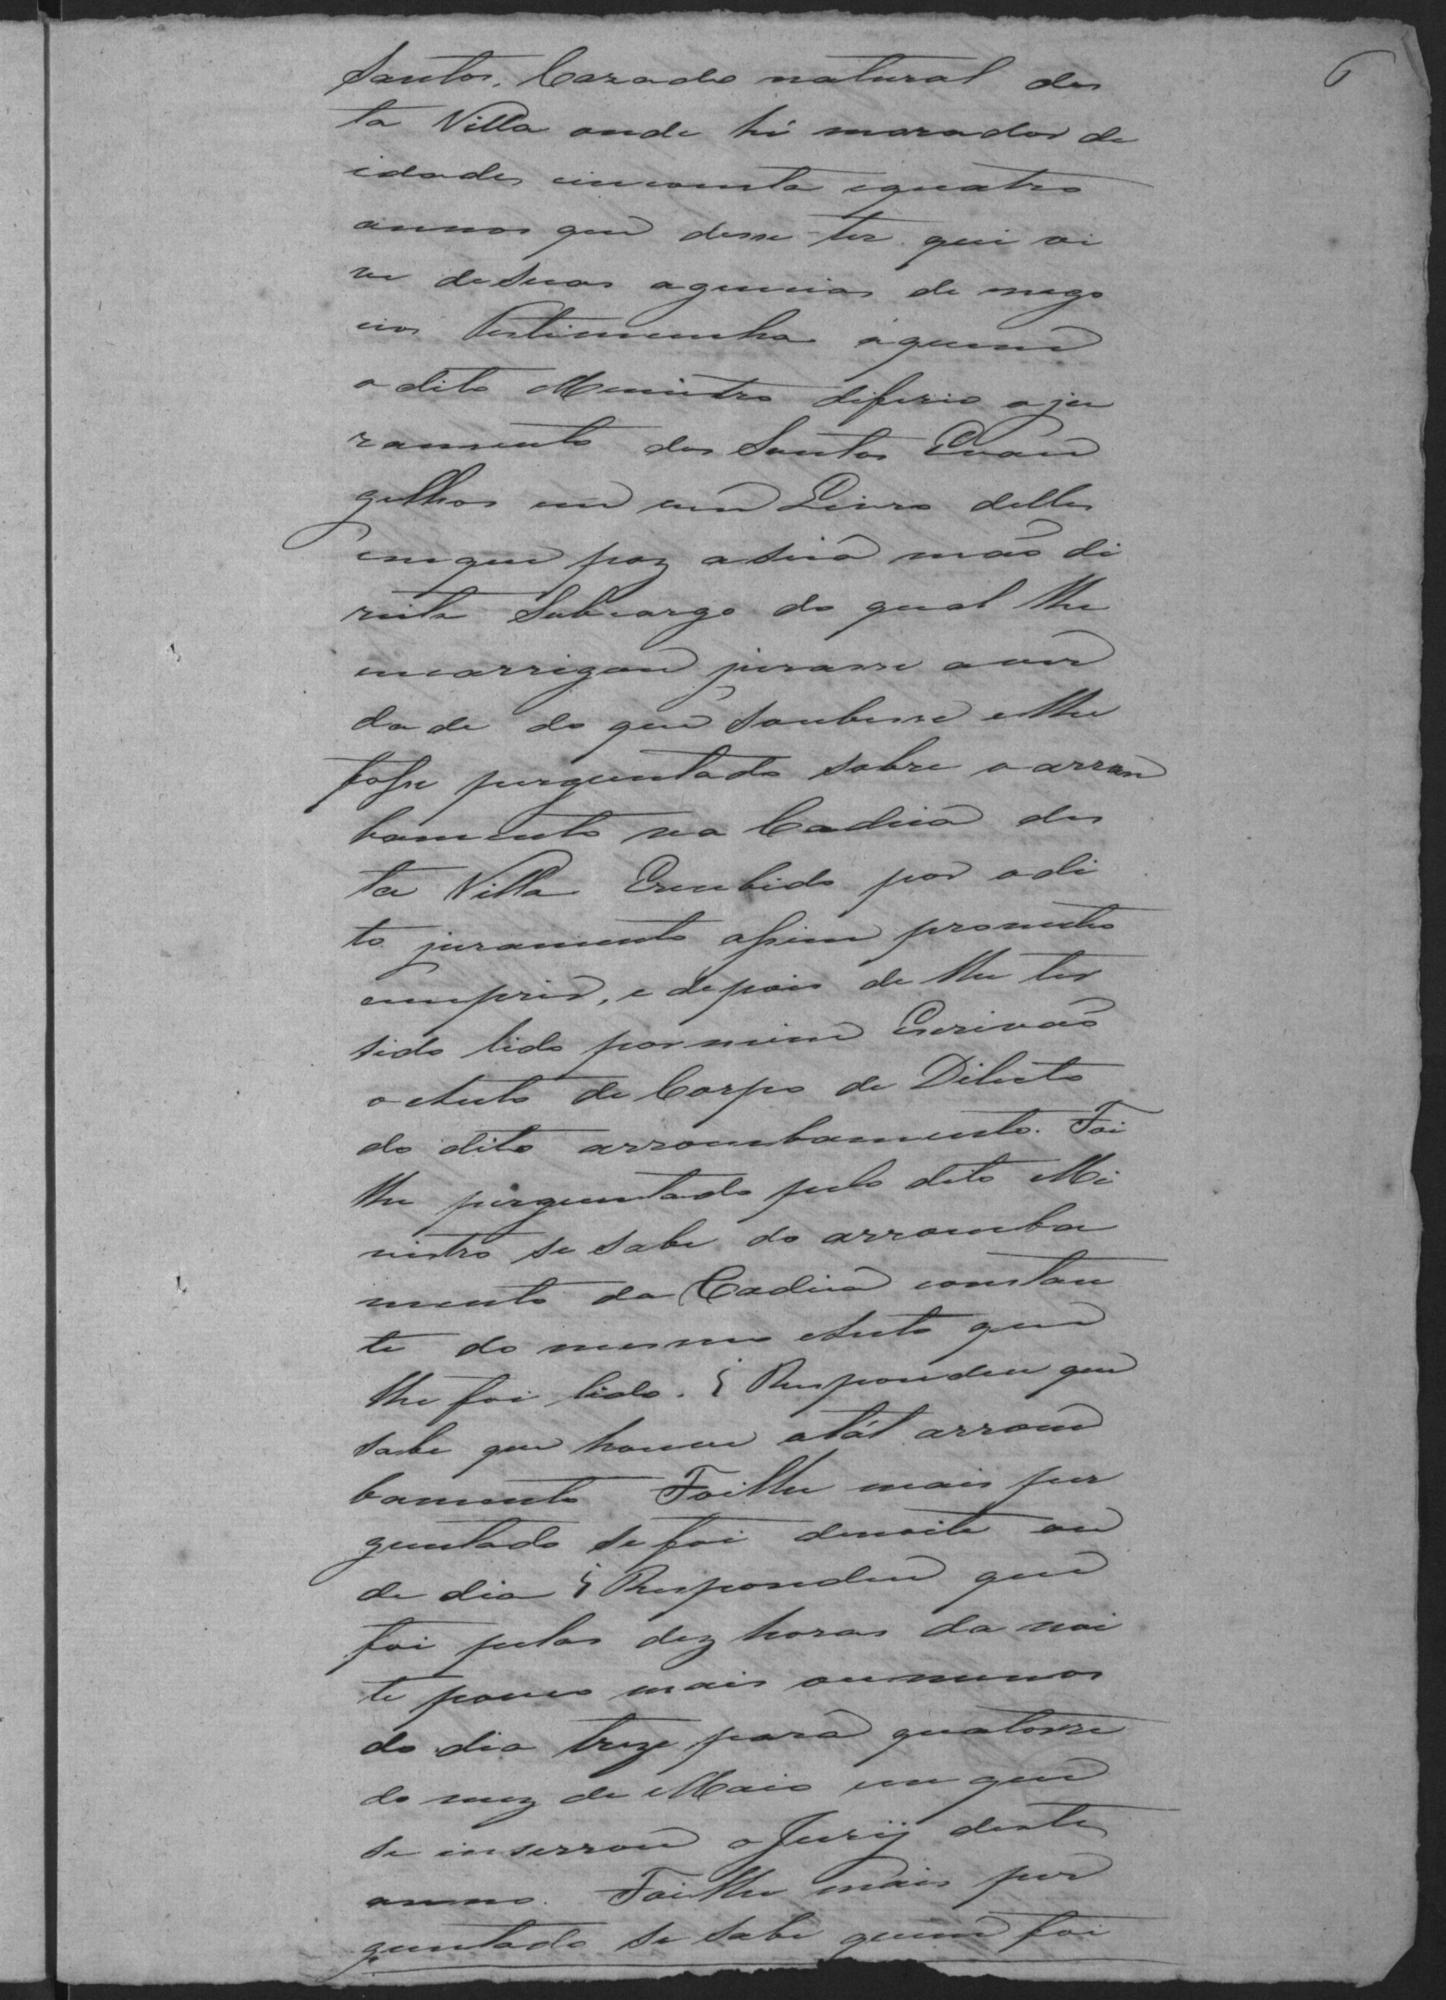 6
Santos, Cazado natural des
ta Villa onde hé morador de
idade sincoenta equatro
annos que disse ter que vi
ve desuas agencias de nego
cios Testimunha áquem
o dito Menistro diferio oju
ramento dos Santos Evan
gelhos em um Livro delles
emque poz asua mão di
reita Subcargo do qual lhe
encarregou jurasse aver
dade do que soubesse elhe
fosse perguntado sobre o arrom
bamento na Cadeia des
ta Villa Erecebido por odi
to juramento assim prometeo
cumprir, e depois de lhe ter
sido lido pormim Escrivão
o Auto de Corpo de Dilicto
do dito arrombamento. Foi
lhe perguntado pelo dito Mi
nistro se sabe do arromba
mento da Cadeia constan
te do mesmo Auto que
lhe foi lido. § Respondeu que
sabe que houve otál arrom
bamento Foilhe mais per
guntado se foi denoite ou
de dia § Respondeu que
foi pelas dez horas da noi
te pouco mais oumenos
do dia treze para quatorze
do mez de Maio em que
se inserrou o Jurij deste
anno. Foilhe mais per
guntado se sabe quem foi